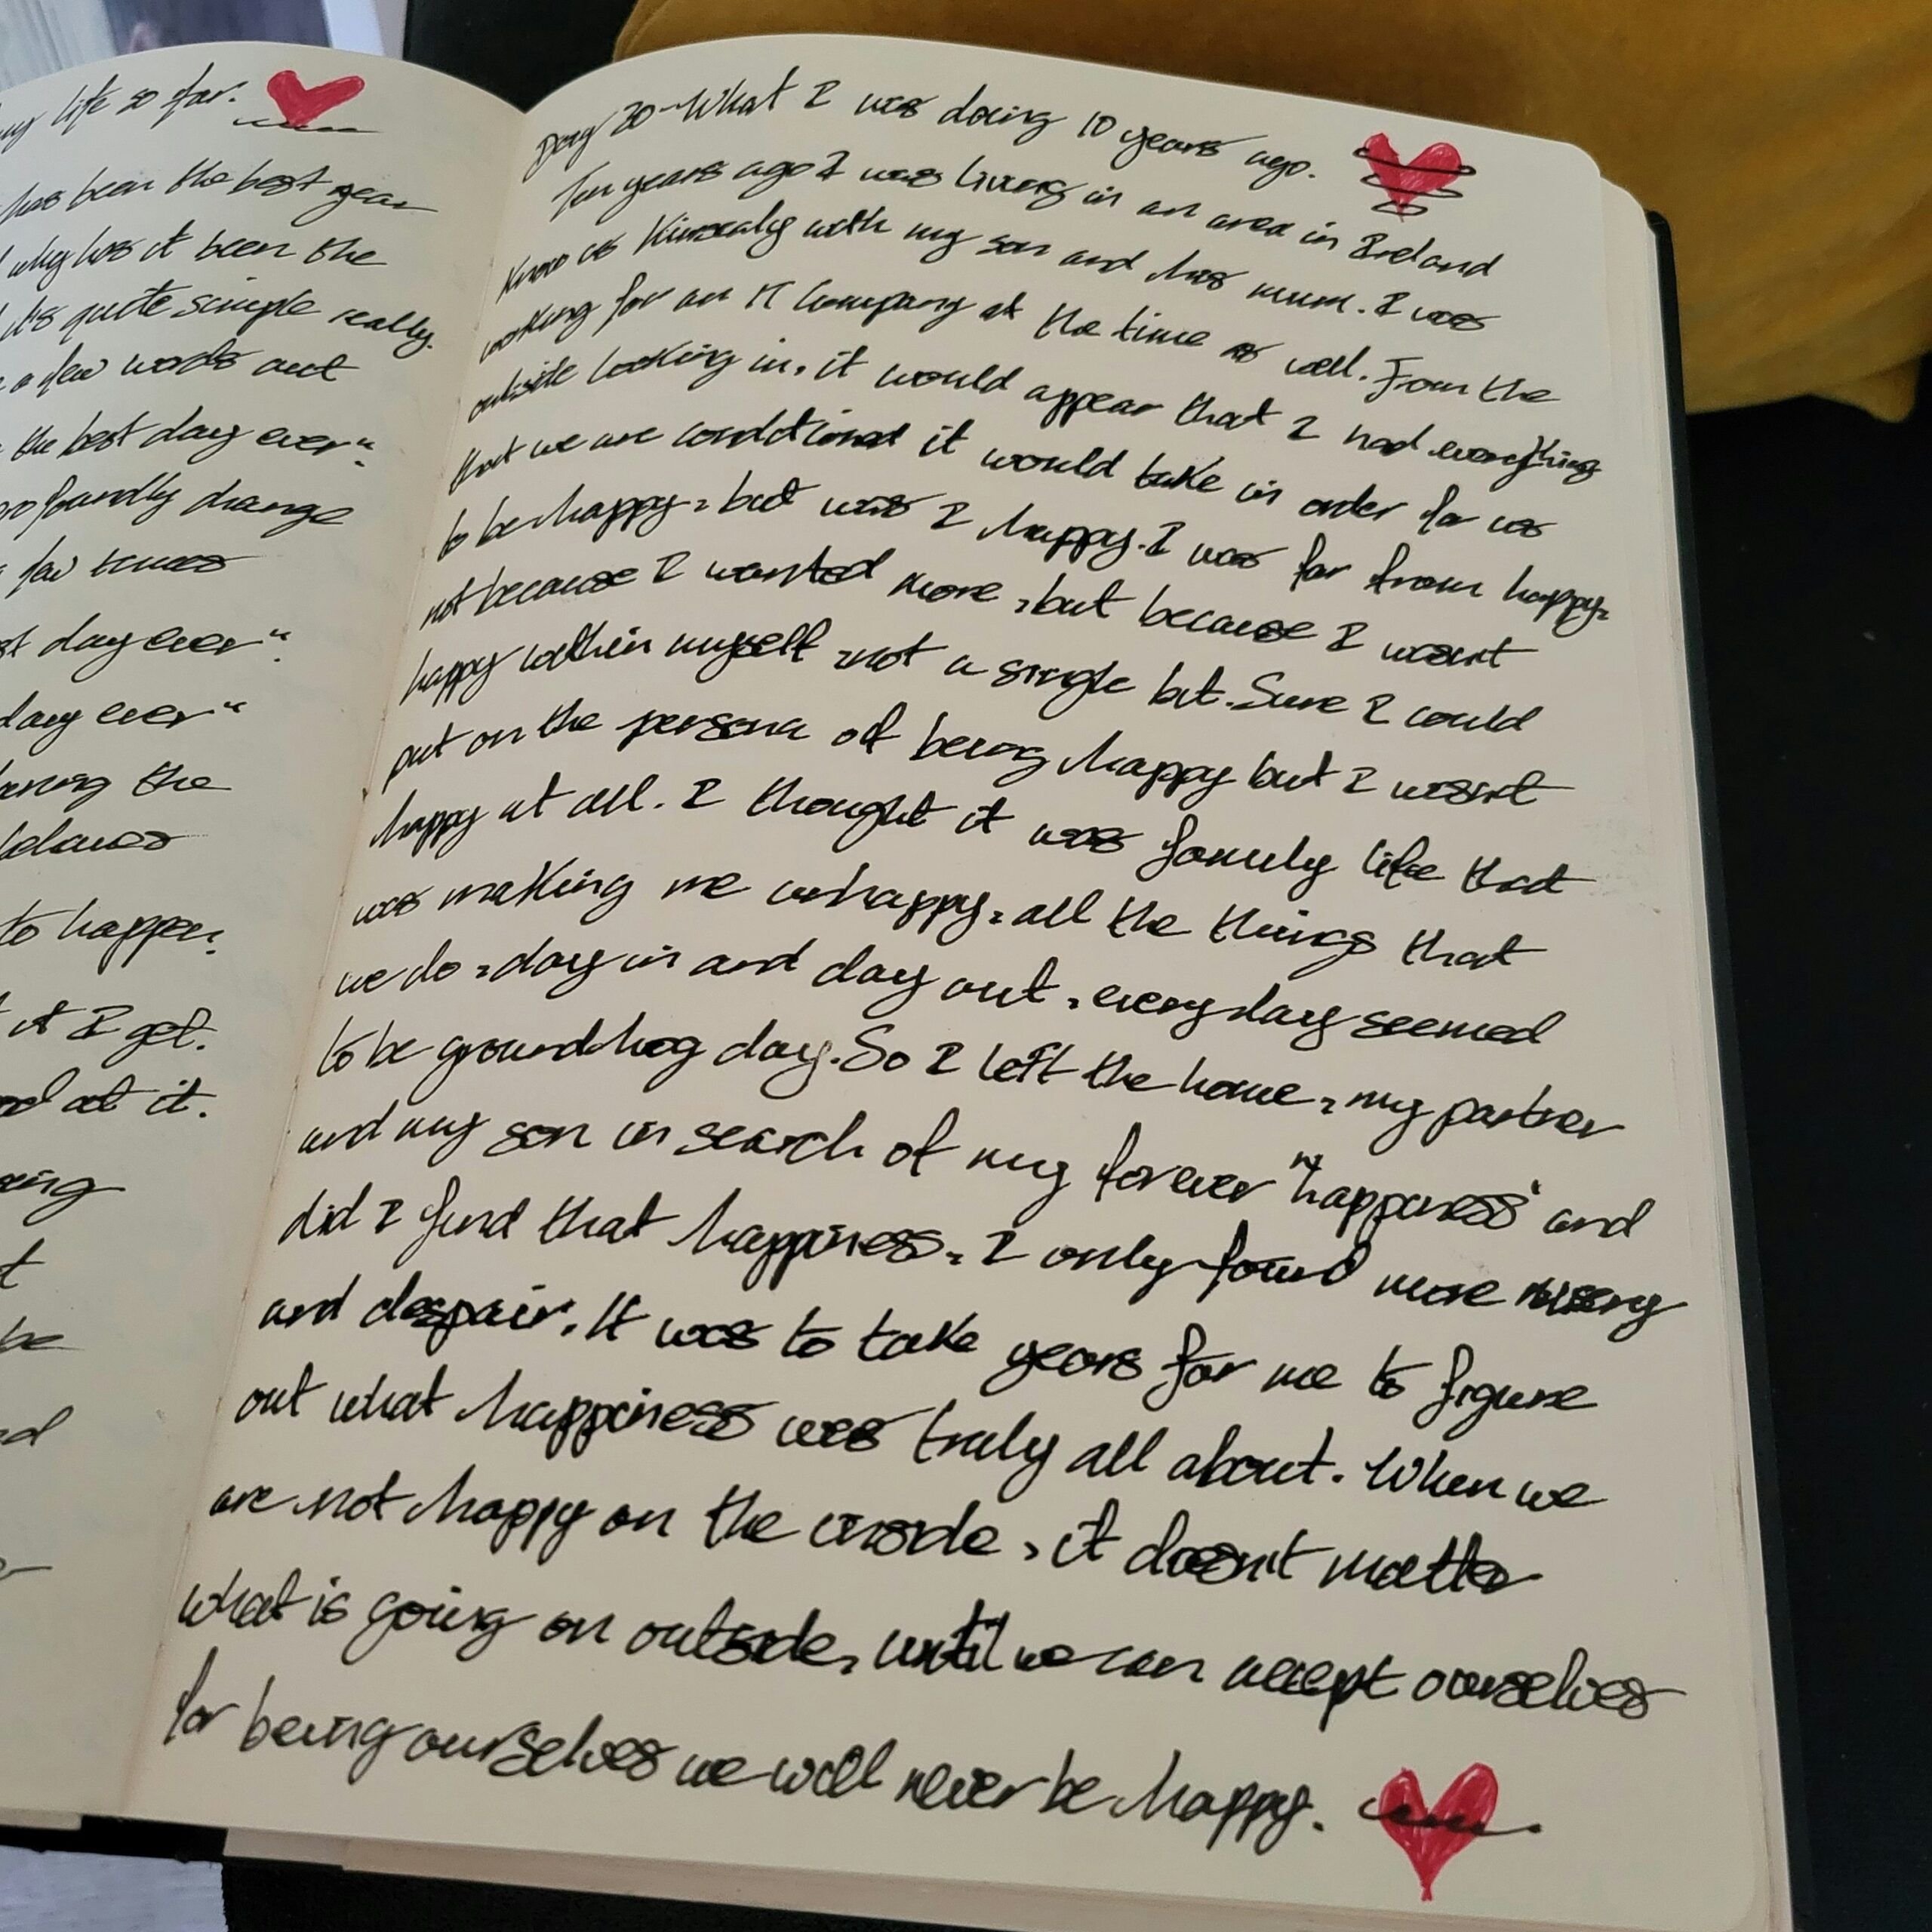 my life so far.
has been the best year
why has it been the
it's quite simple really.
a few words out
the best day ever".
profoundly change
few times
st day ever".
day ever"
the
to happen.
it I get.
at it.
t
be
Day 30 - What I was doing 10 years ago.
Ten years ago I was living in an area in Ireland
know as Kinsealy with my son and his mum. I was
working for an IT Company at the time as well. From the
outside looking in, it would appear that I had everything
that we are conditioned it would take in order for us
to be happy, but was I happy. I was far from happy,
not because I wanted more, but because I wasn't
happy within myself, not a single bit. Sure I could
put on the persona of being happy but I wasn't
happy at all. I thought it was family life that
was making me unhappy, all the things that
we do, day in and day out, every day seemed
to be groundhog day. So I left the home, my partner
and my son in search of my forever "happiness" and
did I find that happiness, I only found more misery
and despair. It was to take years for me to figure
out what happiness was truly all about. When we
are not happy on the inside, it doesn't matter
what is going on outside, until we can accept ourselves
for being ourselves we will never be happy.